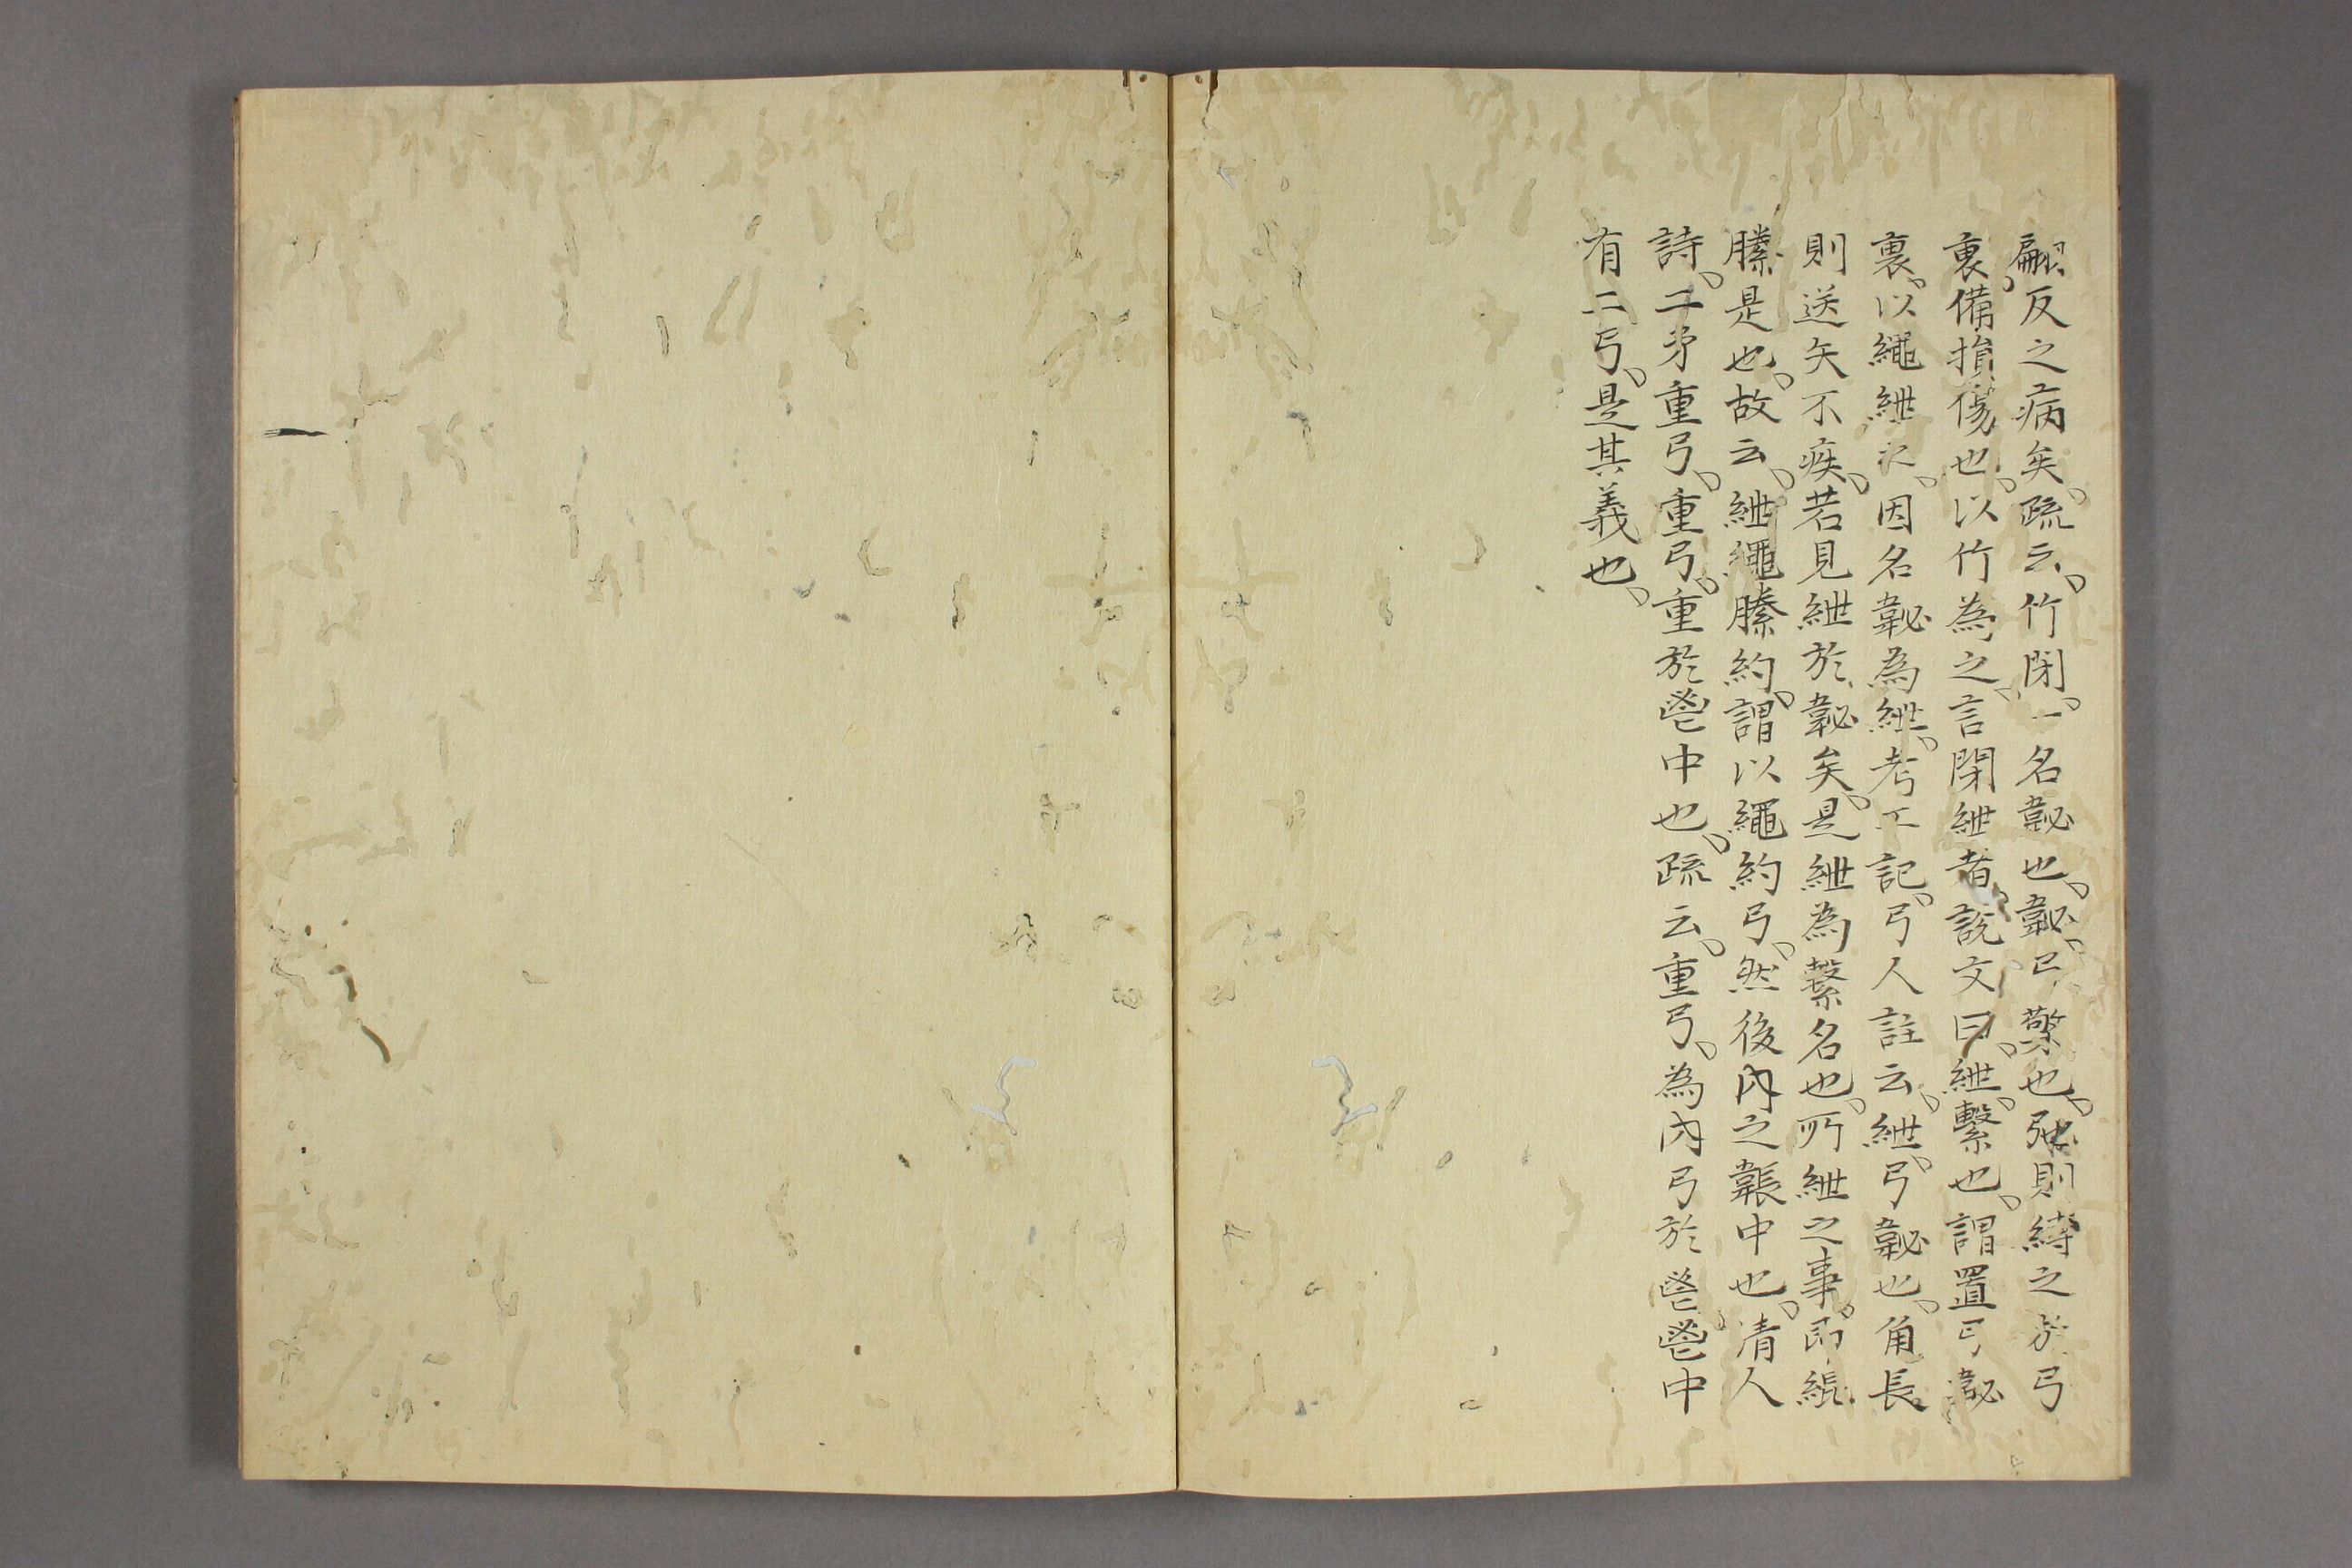 翩反之病矣、疏云、竹閉、一名䪐也、䪐、弓檠也、弛則縛之於弓
裏、備損傷也、以竹為之、言閉紲者、説文曰、紲、繫也、謂置弓䪐
裏、以繩紲之、因名䪐為紲、考工記、弓人註云、紲、弓䪐也、角長
則送矢不疾、若見紲於䪐矣、是紲為繫名也、所紲之事、即緄
縢是也、故云、紲繩縢約、謂以繩約弓、然後內之韔中也、清人
詩、二矛重弓、重弓、重於鬯中也、疏云、重弓、為內弓於鬯、鬯中
有二弓、是其義也、